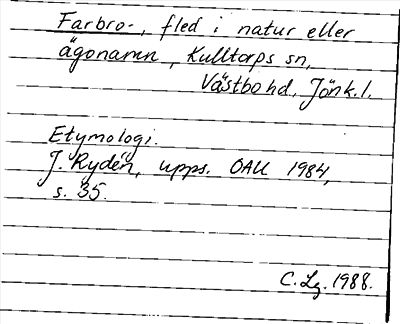 Farbro-, fled i natur eller
ägonamn, Kulltorps sn,
Västbo hd, Jönk.l.
Etymologi.
J. Rydén, upps. OAU 1984,
s. 35.
C. Lg. 1988.